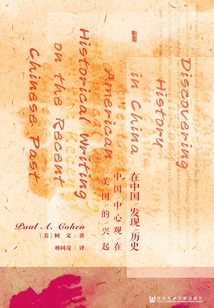 Discovering
History
in China
American
Historical Writing
on the Recent
Chinese Past
在中国发现历史
中国中心观在
美国的兴起
Paul A. Cohen
〔美〕柯文 | 著
林同奇 | 译